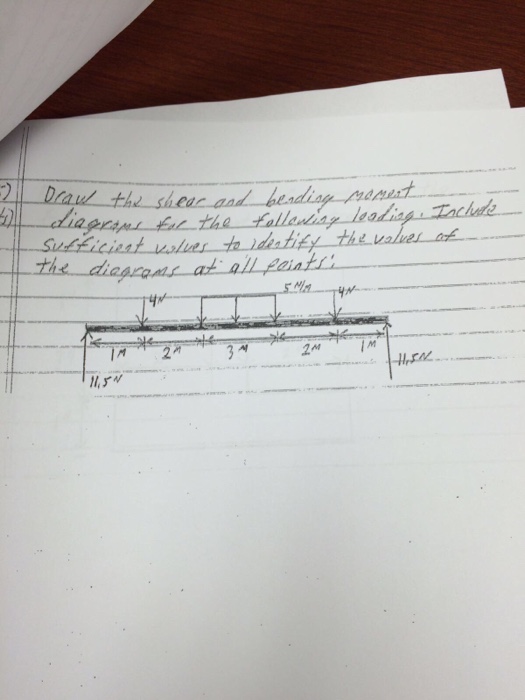 Draw the shear and bending moment
diagrams for the following loading. Include
sufficient values to identify the values of
the diagrams at all points:
4N 5 N/M 4N
1M 2M 3M 2M 1M
11.5N 11.5N